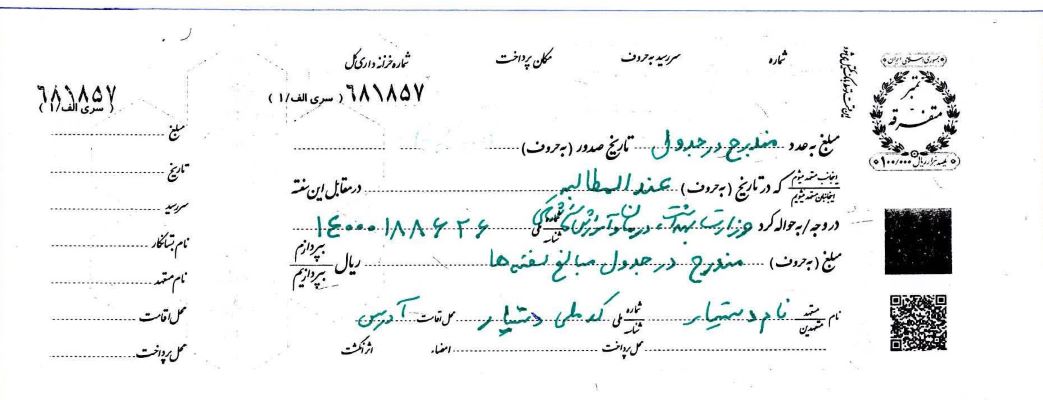 شماره سررسید به حروف مکان پرداخت شماره خزانه داری کل
۶۸۱۸۵۷ ( سری الف/۱ )
جمهوری اسلامی ایران
تمبر
متفرقه
یکصد هزار ریال ۱۰۰/۰۰۰
مبلغ به عدد مندرج در جدول تاریخ صدور (به حروف)
اینجانب متعهد میشوم / اینجانبان متعهد میشویم که در تاریخ (به حروف) عندالمطالبه در مقابل این سفته
در وجه / به حواله کرد وزارت بهداشت، درمان و آموزش پزشکی شماره / شناسه ملی ۱۴۰۰۰۱۸۸۶۲۶
مبلغ (به حروف) مندرج در جدول مبالغ سفته ها ریال بپردازم / بپردازیم
نام متعهد / متعهدین نام دستیار شماره / شناسه ملی کد ملی دستیار محل اقامت آدرس
محل پرداخت امضاء اثر انگشت
۶۸۱۸۵۷
( سری الف/۱ )
مبلغ
تاریخ
سررسید
نام بستانکار
نام متعهد
محل اقامت
محل پرداخت